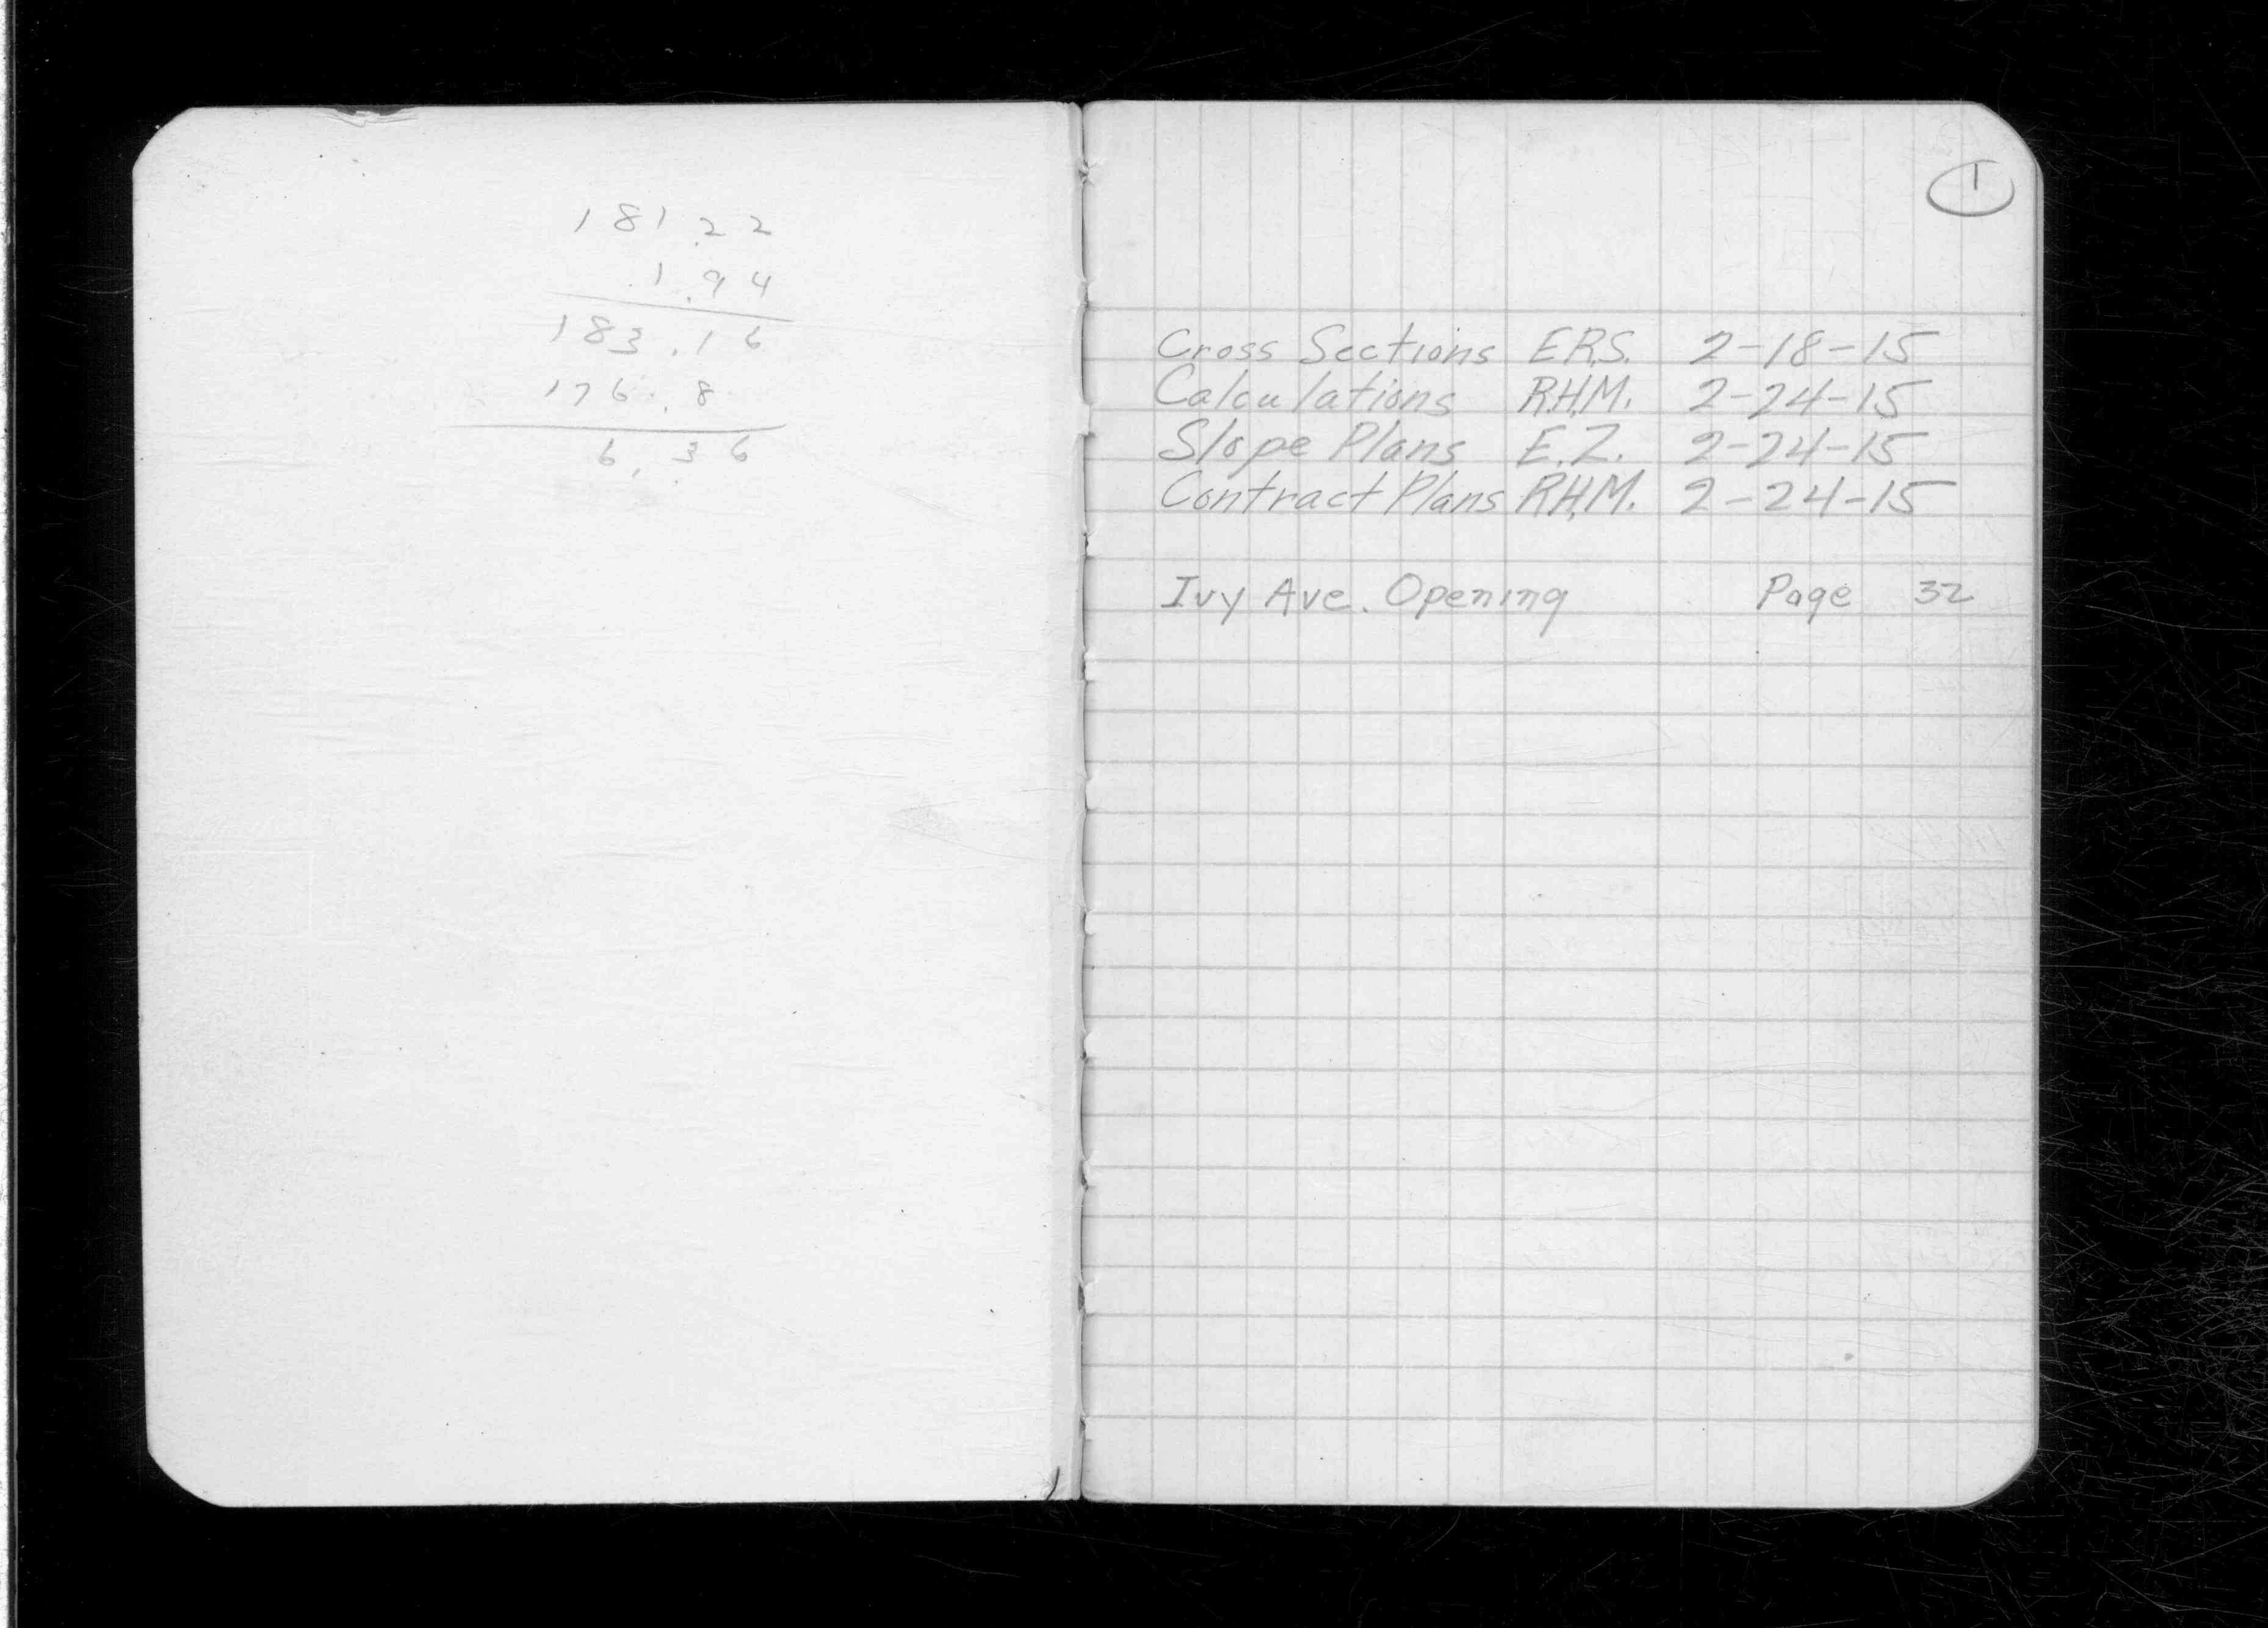 181.22
1.94
183.16
176.8
6.36
1
Cross Sections E.R.S. 2-18-15
Calculations R.H.M. 2-24-15
Slope Plans E.Z. 2-24-15
Contract Plans R.H.M. 2-24-15
Ivy Ave. Opening Page 32